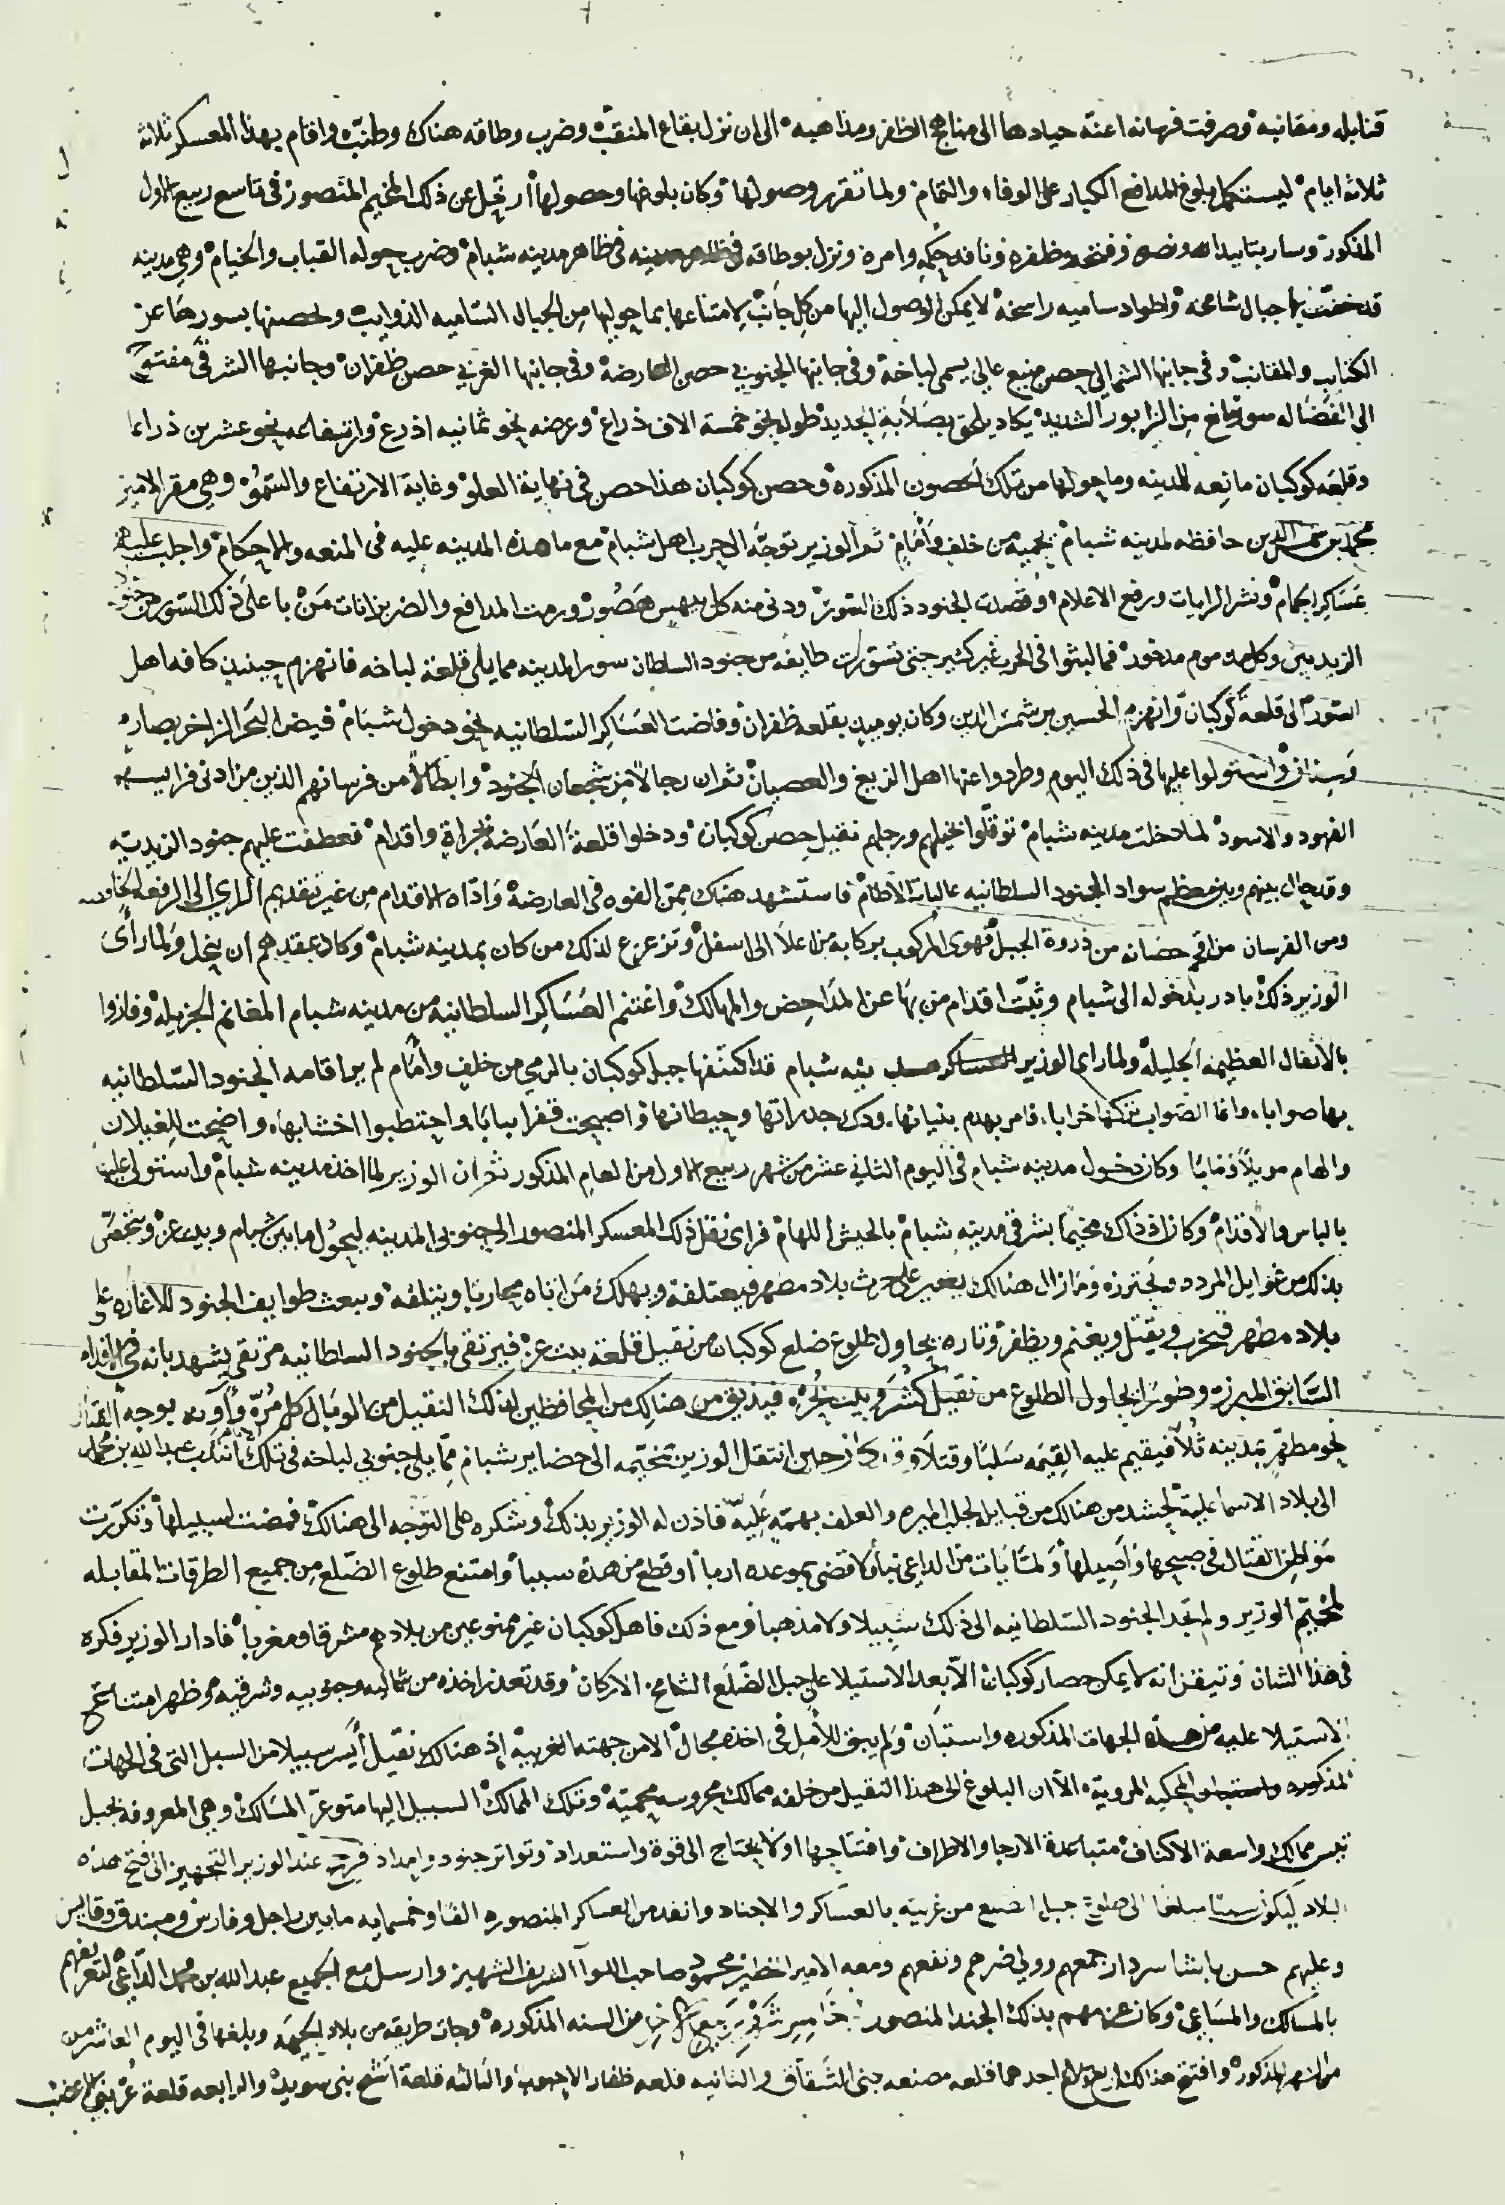 قنابله ومقانبه وصرفت فرسانه اعنة جيادها الى مناهج الظفر ومذاهبه الى ان نزل بقاع المنقب وضرب وطاقه هناك وطنبه واقام بهذا المعسكر ثلاثه
ثلاثه ايام ليستكمل بلوغ المدافع الكبار على الوفاء والتمام ولما تقرر وصولها وكان بلوغها وحصولها ارتحل عن ذلك المخيم المنصور في تاسع ربيع الاول
المذكور وسار بتاييد الله ونصره وفتحه وظفره ونافد حكمه وامره ونزل بوطاقه في ظاهر مدينه شبام وضرب حوله القباب والخيام وهي مدينه
قد حفت بها جبال شامخه واطواد ساميه راسخه لا يمكن الوصول اليها من كل جانب لامتناعها بما حوليها من الجبال الساميه الذوايب وتحصنها بسورها عن
الكتايب والمقانب وفي جانبها الشمالي حصن منيع عالي يسمى لباخه وفي جانبها الجنوبي حصن العارضه وفي جانبها الغربي حصن ظفران وجانبها الشرقي مفتوح
الى الفضا له سور مانع من الزابور الشديد يكاد يلحق بصلابة الحديد طوله نحو خمسة الاف ذراع وعرضه نحو ثمانيه اذرع وارتفاعه نحو عشرين ذراعا
وقلعه كوكبان مانعه للمدينه وما حولها من تلك الحصون المذكوره وحصن كوكبان هذا حصن في نهاية العلو وغاية الارتفاع والسمو وهي مقر الامير
محمد بن شمس الدين حافظه لمدينه شبام محميه من خلف وامام ثم ان الوزير توجه الى حرب اهل شبام مع ما هذه المدينه عليه في المنعه والاحكام واجلب عليهم
عساكر اجمام ونشر الرايات ورفع الاعلام وقصدت الجنود ذلك السور ودنى منه كل بيهس هصور ورمت المدافع والضربزانات من باعلى ذلك السور من جنود
الزيديين وكل مذموم مدحور فما لبثوا في الحرب غير كثير حتى تسورت طايفه من جنود السلطان سور المدينه مما يلي قلعة لباخه فانهزم حينيذ كافه اهل
السور الى قلعة كوكبان وانهزم الحسين بن شمس الدين وكان يوميذ بقلعه ظفران وفاضت العساكر السلطانيه نحو دخول شبام فيض البحر الزاخر بصارم
وسنان واستولوا عليها في ذلك اليوم وطردوا عنها اهل الزيغ والعصيان ثم ان رجالا من شجعان الجنود وابطالا من فرسانهم الذين من ادنى فرايسهم
الفهود والاسود لما دخلت مدينه شبام توقلوا بخيلهم ورجلهم نقيل حصن كوكبان ودخلوا قلعة العارضه بجراة واقدام فعطفت عليهم جنود الزيديه
وقد حال بينهم وبين معظم سواد الجنود السلطانيه عاليات الاطام فاستشهد هناك ممن الفوه في العارضه واداه الاقدام من غير تقديم الراي الى الرفعه
ومن الفرسان من اقحم حصانه من ذروة الجبل فهوى المركوب براكبه من اعلا الى اسفل وتزعزع لذلك من كان بمدينه شبام وكاد عقدهم ان ينحل ولما راى
الوزير ذلك بادر بدخوله الى شبام وثبت اقدام من بها عن المداحض والمهالك واغتنم العساكر السلطانيه من مدينه شبام المغانم الجزيله وفازوا
بالانفال العظيمه الجليله ولما راى الوزير مدينه شبام قد اكتنفها جبل كوكبان بالرمي من خلف وامام لم ير اقامه الجنود السلطانيه
بها صوابا وانما الصواب تركها خرابا فامر بهدم بنيانها ودك جدراتها وحيطانها فاصبحت قفرا يبابا واحتطبوا اخشابها واضحت للغيلان
والهام موئلا ومابا وكان دخول مدينه شبام في اليوم الثاني عشر من شهر ربيع الاول من العام المذكور ثم ان الوزير لما اخذ مدينه شبام واستولى عليها
بالباس والاقدام وكان اذ ذاك مخيما بشرقي مدينه شبام بالجيش اللهام فراى نقل ذلك المعسكر المنصور الى جنوبي المدينه ليحول ما بين شبام وبيت عز ويتحصن
بذلك من غوايل المردة ويحترز وما زال هنالك يغير على حرث بلاد مطهر فيعتلفه ويهلك من اتاه محاربا ويتلفه ويبعث طوايف الجنود للاغاره على
بلاد مطهر فتخرب ويقتل ويغنم ويظفر وتاره يحاول طلوع ضلع كوكبان من نقيل قلعة بيت عز فيرتقي بالجنود السلطانيه مرتقى يشهد بانه في الاقدام
السابق المبرز وطورا يحاول الطلوع من نقيل وبيت فيذيق من هنالك من المحافظين لذلك النقيل من الوبال كل مرة واونه يوجه القتال
نحو مطهر بمدينه ثلا فيقيم عليه القيمه سلبا وقتلا وقد كان حين انتقل الوزير بمخيمه الى حضاير شبام مما يلي جنوبي لباخه في تلك الايام انتدب عبد الله بن محمد
الى بلاد الاسماعيلية لحشد من هنالك من قبايله لجلب الميره والعلف بهمة علية فاذن له الوزير بذلك وشكره على التوجه الى هنالك فمضت لسبيلها وتكررت
مواطن القتال في صبحها واصيلها ولما يات من الداعي نبا ولا قضى بموعده اربا او قطع من هذه سببا وامتنع طلوع الضلع من جميع الطرقات المقابله
لمخيم الوزير ولم تجد الجنود السلطانيه الى ذلك سبيلا ولا مذهبا ومع ذلك فاهل كوكبان غير ممنوعين من بلادهم مشرقا ومغربا فادار الوزير فكره
في هذا الشان وتيقن انه لا يمكن حصار كوكبان الا بعد الاستيلا على جبل الضلع الشامخ الاركان وقد تعذر اخذه من شماليه وجنوبيه وشرقيه وظهر امتناع
الاستيلا عليه من هذه الجهات المذكوره واستبان ولم يبق للامل في اخذه مجال الا من جهته الغربيه اذ هنالك نقيل ايسر سبيلا من السبل التي في الجهات
المذكوره المحكيه المرويه الا ان البلوغ الى هذا النقيل من خلفه ممالك محروسه محميه وتلك الممالك السبيل اليها متوعر المسالك وهي المعروفه بجبل
تيس ممالك واسعة الاكناف متباعدة الارجا والاطراف وافتتاحها اولا يحتاج الى قوة واستعداد وتواتر جنود وامداد فرجح عند الوزير التجهيز الى فتح هذه
البلاد ليكون سببا مبلغا الى طلوع جبل الضلع من غربيه بالعساكر والاجناد وانفد من العساكر المنصوره الفا وخمسمايه ما بين راجل وفارس ومبندق وقايس
وعليهم حسن باشا سردار جمعهم وولي ضرهم ونفعهم ومعه الامير الخطير محمود صاحب اللوا الشريف الشهير وارسل مع الجميع عبد الله بن محمد الداعي لتعريفهم
بالمسالك والمساعي وكان عزمهم بذلك الجند المنصور خامس شهر ربيع الاخر من السنه المذكوره وجات طريقه من بلاد الحيمه وبلغها في اليوم العاشر من
من الشهر المذكور وافتتح هنالك اربع قلاع احدهما قلعه مصنعه بني الشقاق والثانيه قلعه ظفار والثالثه قلعة اشح بني سويد والرابعه قلعة عر بني